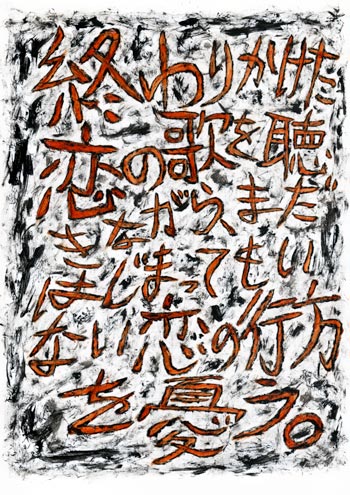 終わりかけた
恋の歌を聴
きながら、まだ
はじまってもい
ない恋の行方
を憂う。